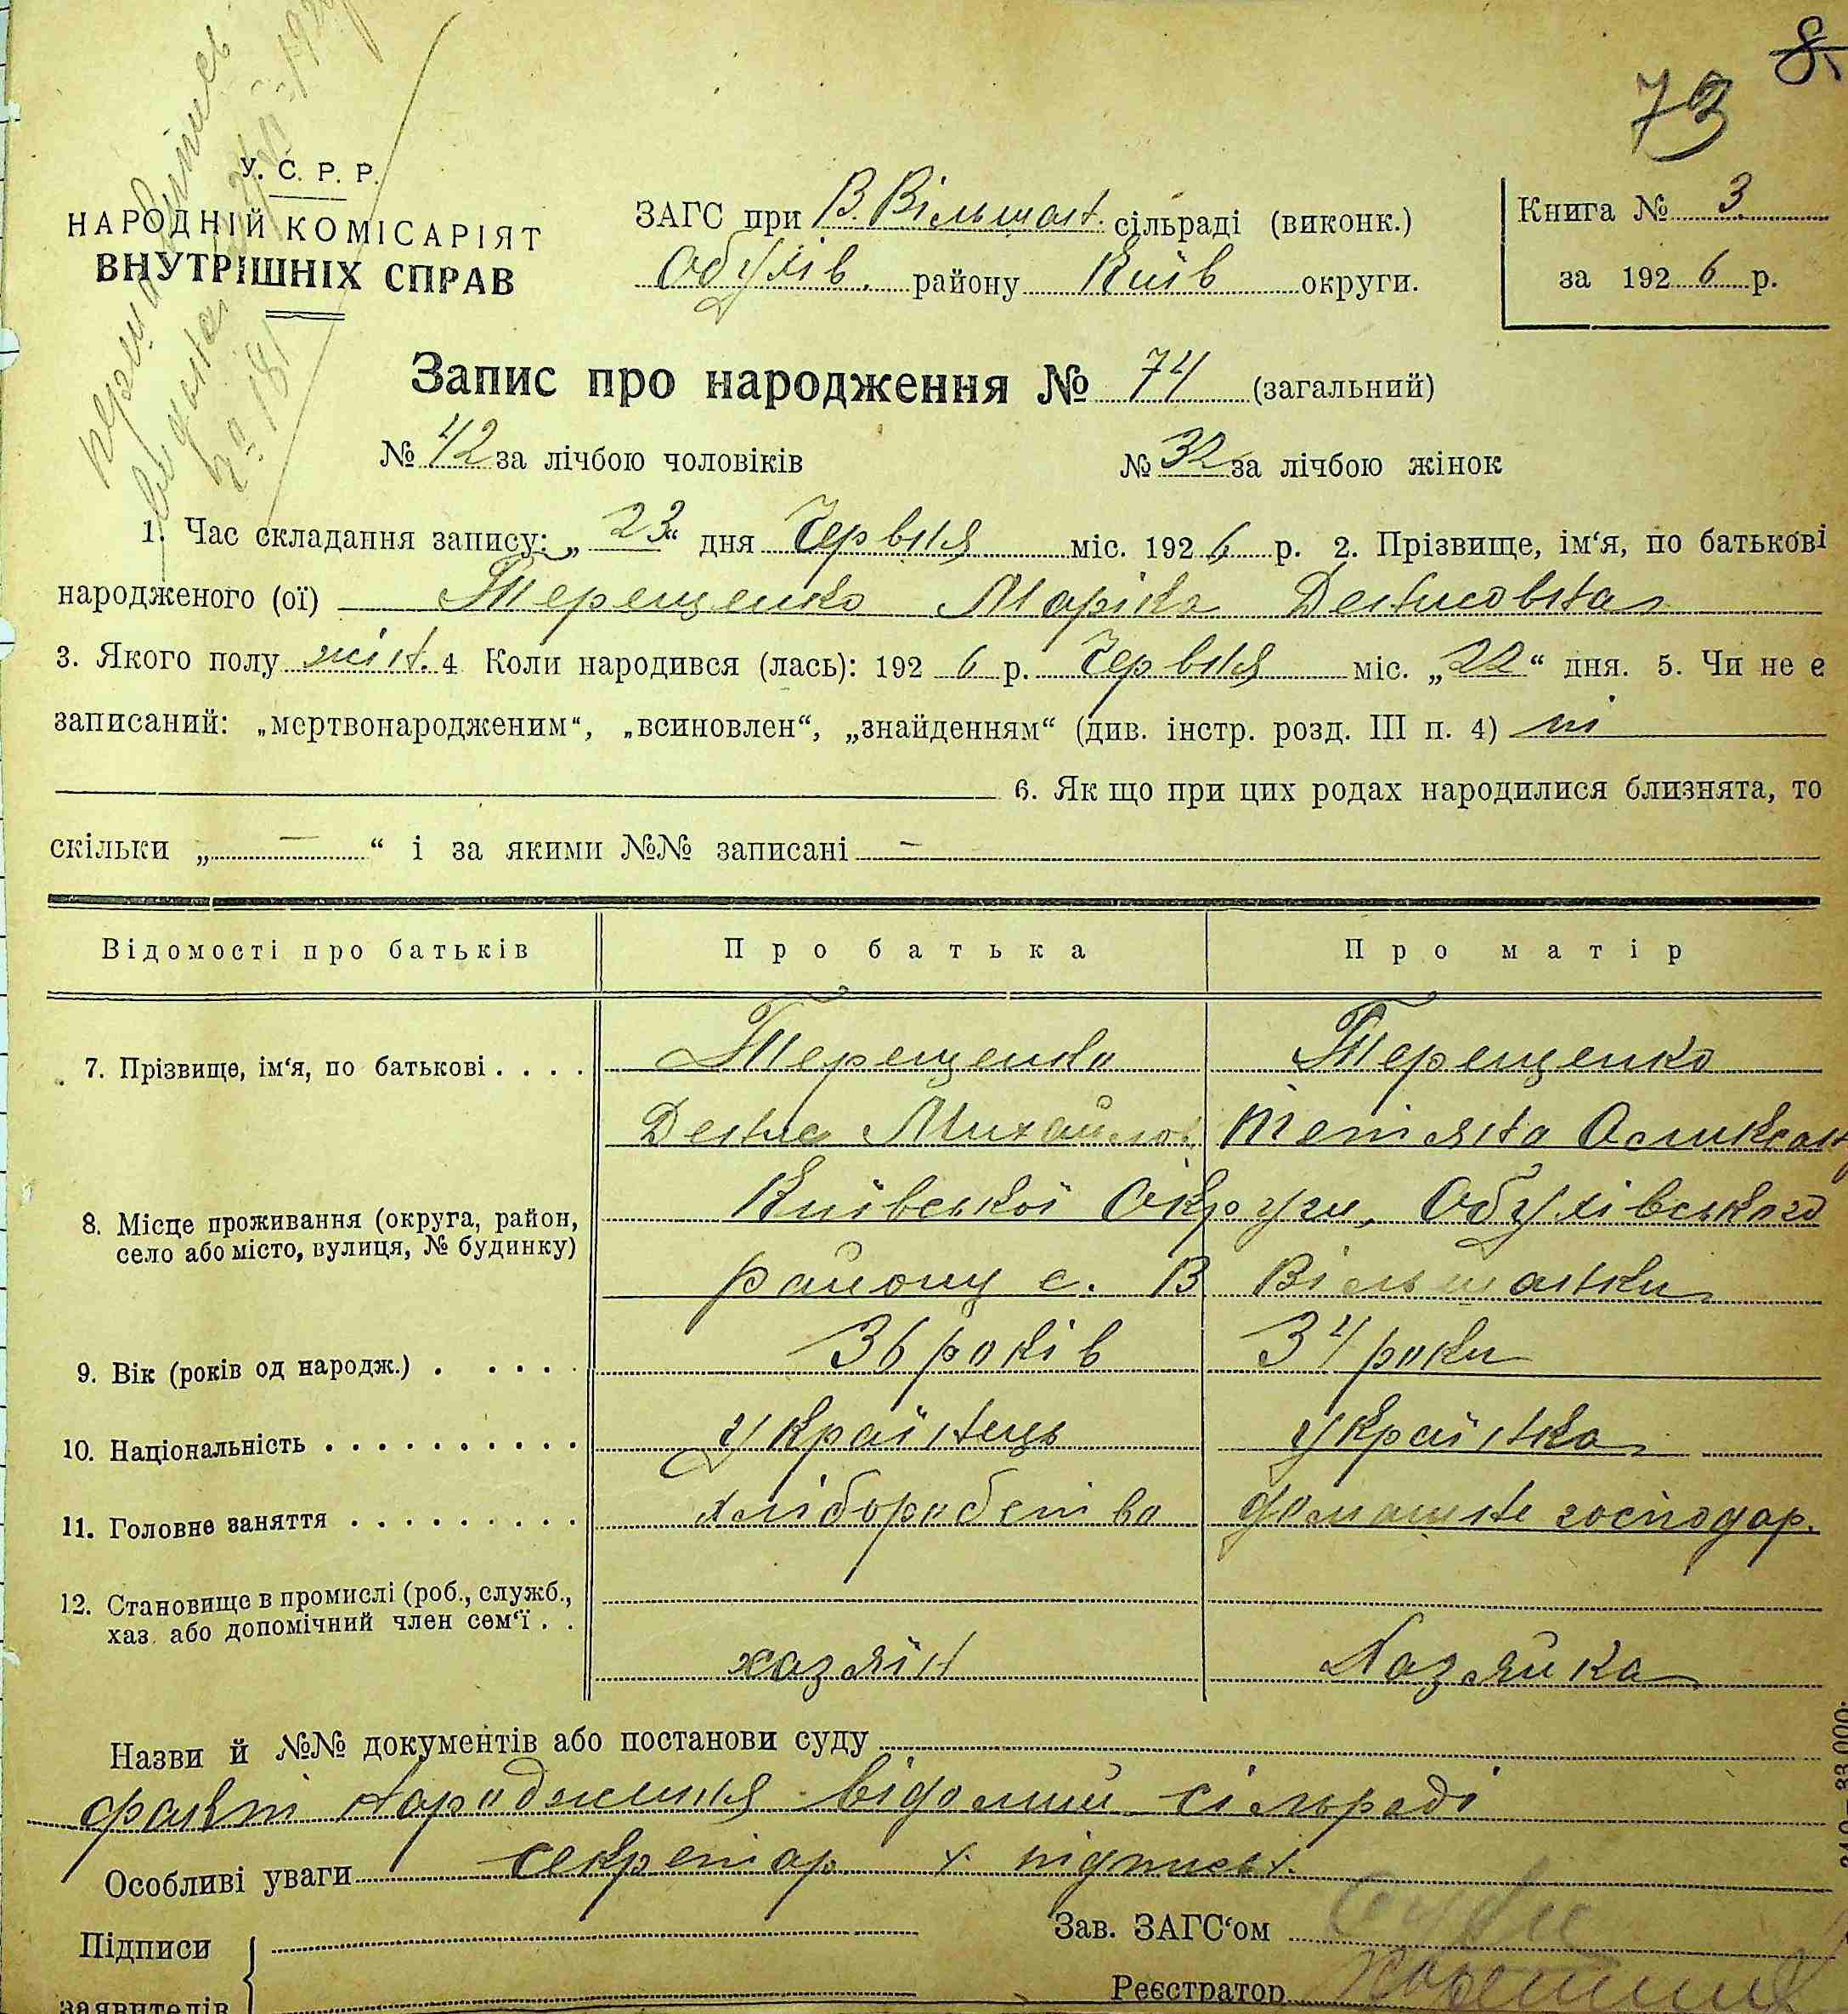 8.
73
У. С. Р. Р.
НАРОДНІЙ КОМІСАРІЯТ
ВНУТРІШНІХ СПРАВ
ЗАГС при В. Вільшан. сільраді (виконк.)
Обухів. району Київ округи.
Книга № 3
за 1926 р.
Запис про народження № 74 (загальний)
№ 42 за лічбою чоловіків № 32 за лічбою жінок
1. Час складання запису: „23“ дня Червня міс. 1926 р. 2. Прізвище, ім‘я, по батькові
народженого (ої) Терещенко Маріка Денисовна
3. Якого полу жін. 4 Коли народився (лась): 1926 р. Червня міс. „22“ дня. 5. Чи не є
записаний: „мертвонародженим“, „всиновлен“, „знайденням“ (див. інстр. розд. III п. 4) ні
6. Як що при цих родах народилися близнята, то
скільки „ — “ і за якими №№ записані —
Відомості про батьків Про батька Про матір
7. Прізвище, ім‘я, по батькові . . . . Терещенко Терещенко
Денис Михайлов
8. Місце проживання (округа, район, Київської Округи, Обухівського
село або місто, вулиця, № будинку)
району с. В Вільшанки
9. Вік (років од народж.) . . . . . 36 років 34 роки
10. Національність . . . . . . . . . . Українець Українка
11. Головне заняття . . . . . . . . . хліборобство домашнє господар.
12. Становище в промислі (роб., служб.,
хаз. або допомічний член сем‘ї . .
хазяїн Хазяйка
Назви й №№ документів або постанови суду
факт народження відомий сільраді
Особливі уваги секретар х підпис х.
Підписи
заявителів
Зав. ЗАГС‘ом
Реєстратор